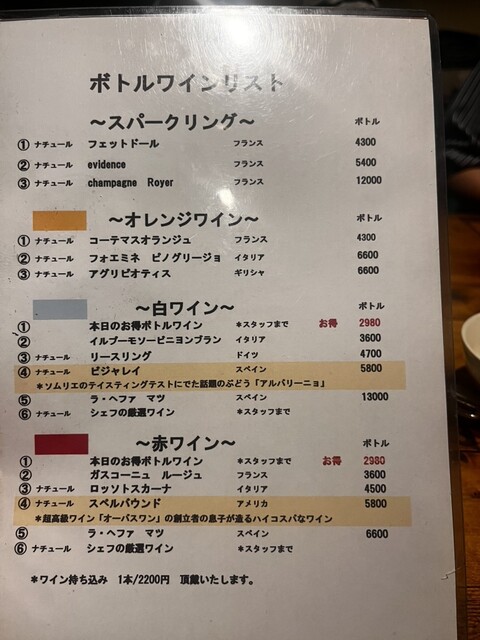 ボトルワインリスト
～スパークリング～ ボトル
① ナチュール フェットドール フランス 4300
② ナチュール evidence フランス 5400
③ ナチュール champagne Royer フランス 12000
～オレンジワイン～ ボトル
① ナチュール コーテマスオランジュ フランス 4300
② ナチュール フォエミネ ピノグリージョ イタリア 6600
③ ナチュール アグリピオティス ギリシャ 6600
～白ワイン～ ボトル
① 本日のお得ボトルワイン *スタッフまで お得 2980
② イルブーモソービニヨンブラン イタリア 3600
③ ナチュール リースリング ドイツ 4700
④ ナチュール ビジャレイ スペイン 5800
*ソムリエのテイスティングテストにでた話題のぶどう「アルバリーニョ」
⑤ ラ・ヘファ マツ スペイン 13000
⑥ ナチュール シェフの厳選ワイン *スタッフまで
～赤ワイン～ ボトル
① 本日のお得ボトルワイン *スタッフまで お得 2980
② ガスコーニュ ルージュ フランス 3600
③ ナチュール ロッソトスカーナ イタリア 4500
④ ナチュール スペルバウンド アメリカ 5800
*超高級ワイン「オーパスワン」の創立者の息子が造るハイコスパなワイン
⑤ ラ・ヘファ マツ スペイン 6600
⑥ ナチュール シェフの厳選ワイン *スタッフまで
*ワイン持ち込み 1本/2200円 頂戴いたします。